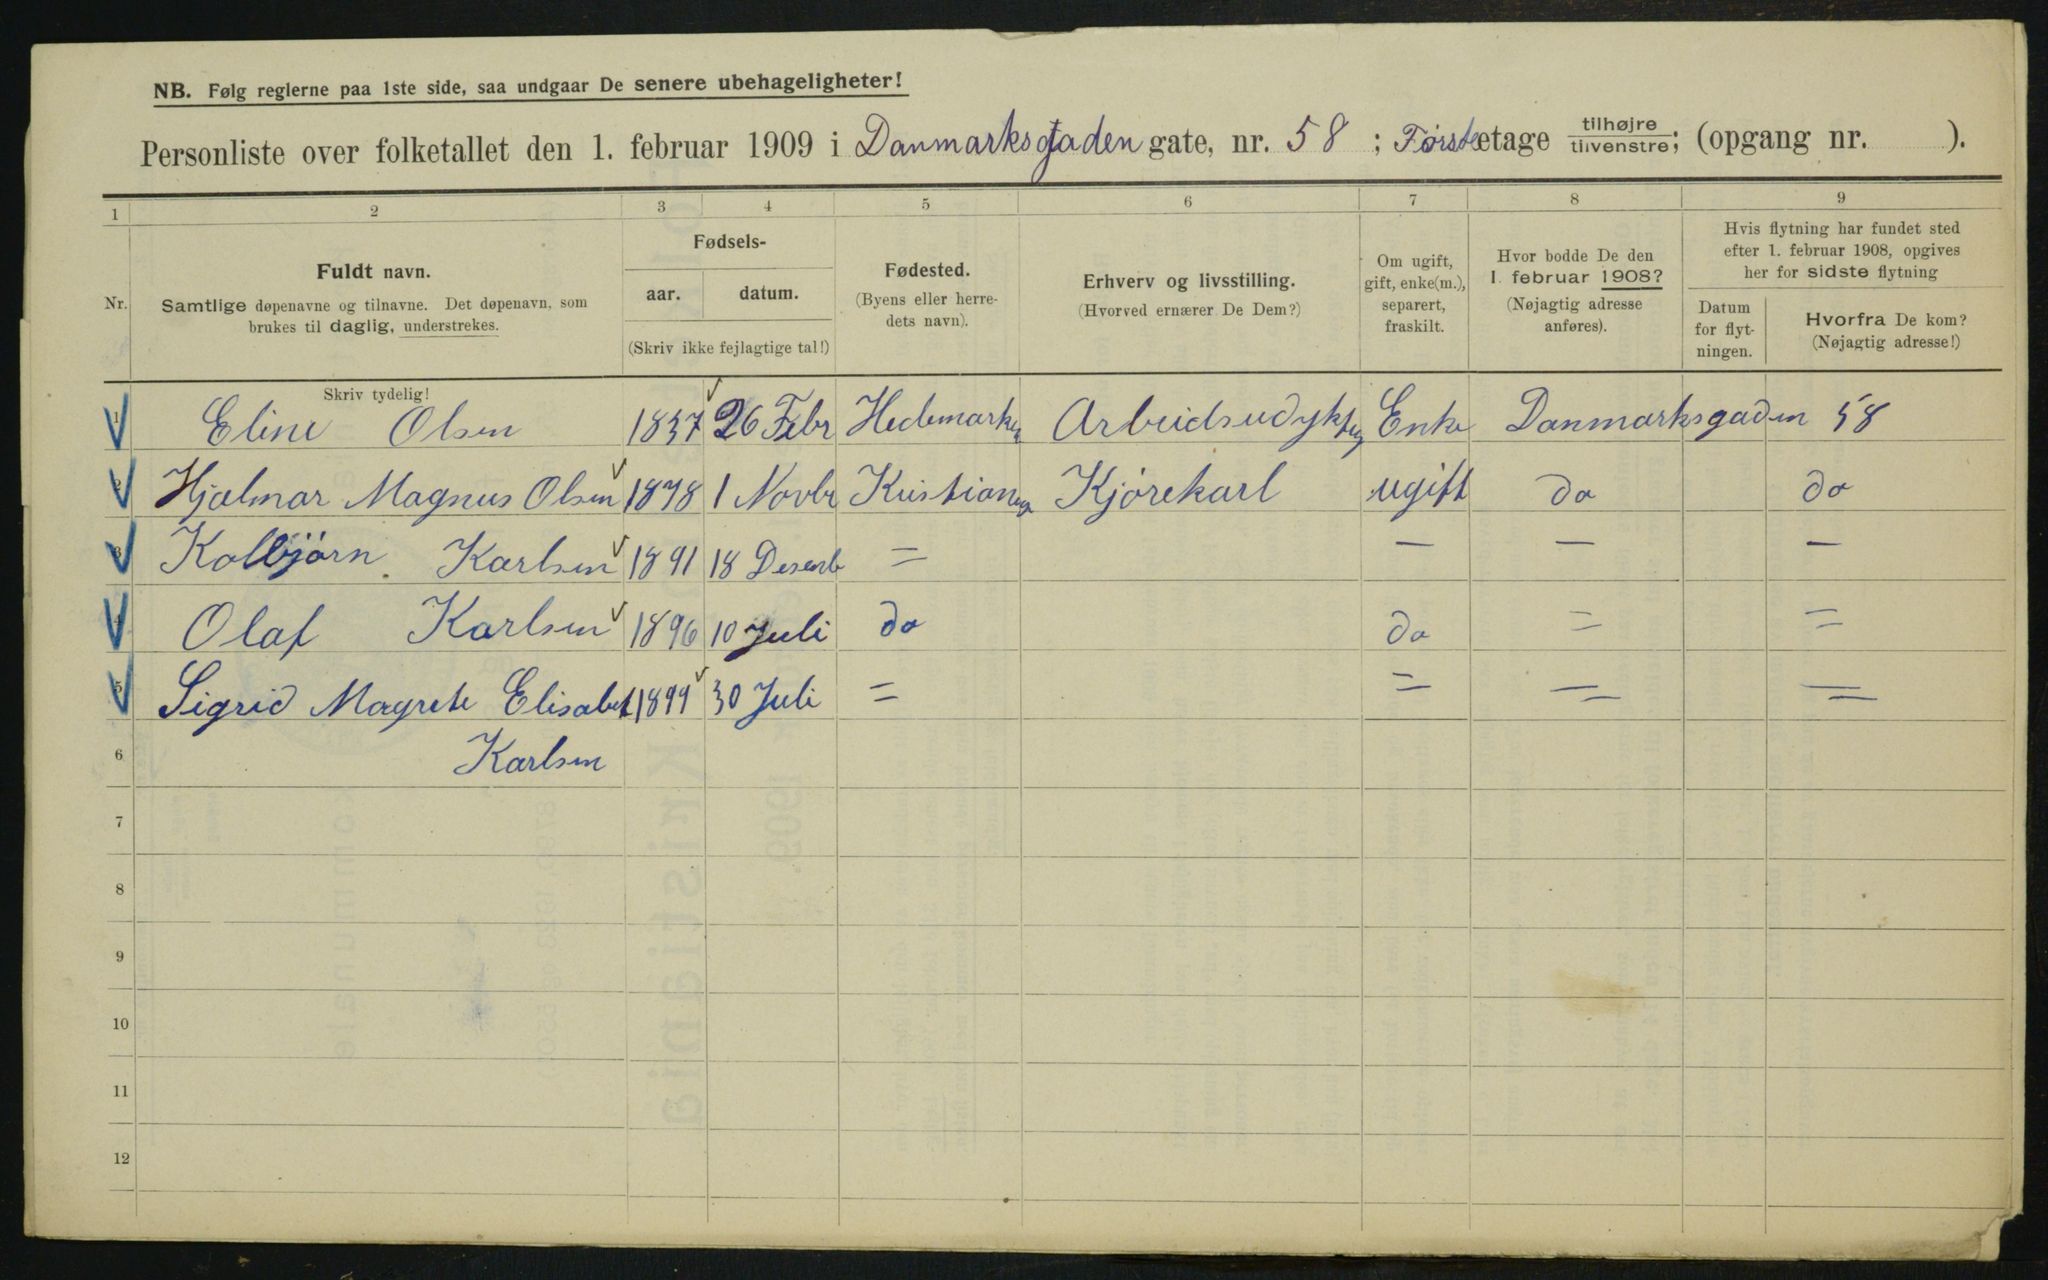 NB. Følg reglerne paa 1ste side, saa undgaar De senere ubehageligheter!
Personliste over folketallet den 1. februar 1909 i Danmarksgaden gate, nr. 58 ; Første etage tilhøjre tilvenstre; (opgang nr. ).
1 2 3 4 5 6 7 8 9
Nr.
Fuldt navn.
Samtlige døpenavne og tilnavne. Det døpenavn, som
brukes til daglig, understrekes.
Fødsels-
aar. datum.
(Skriv ikke fejlagtige tal!)
Fødested.
(Byens eller herre-
dets navn).
Erhverv og livsstilling.
(Hvorved ernærer De Dem?)
Om ugift,
gift, enke(m.),
separert,
fraskilt.
Hvor bodde De den
1. februar 1908?
(Nøjagtig adresse
anføres).
Hvis flytning har fundet sted
efter 1. februar 1908, opgives
her for sidste flytning
Datum
for flyt-
ningen.
Hvorfra De kom?
(Nøjagtig adresse!)
Skriv tydelig!
1 Eline Olsen 1837 26 Febr Hedemarken Enke Danmarksgaden 58
2 Hjalmar Magnus Olsen 1878 1 Novbr Kristiania Kjørekarl ugift do do
3 Kolbjørn Karlsen 1891 18 Desemb = — — —
4 Olaf Karlsen 1896 10 Juli do do = =
5 Sigrid Magrete Elisabet 1899 30 Juli = = = =
6 Karlsen
7
8
9
10
11
12